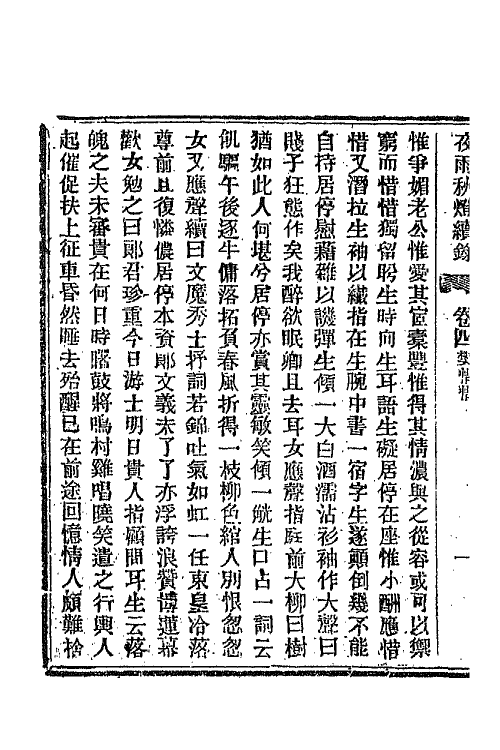 夜雨秋燈續錄 卷四 樊惜惜 一
惟爭媚老公惟愛其宦橐豐惟得其情濃與之從容或可以禦
窮而惜惜獨留盼生時向生耳語生礙居停在座惟小酬應惜
惜又潛拉生袖以纖指在生腕中書一宿字生遂顛倒幾不能
自持居停慰藉雜以譏彈生傾一大白酒濡沾衫袖作大聲曰
賤子狂態作矣我醉欲眠卿且去耳女應聲指庭前大柳曰樹
猶如此人何堪兮居停亦賞其靈敏笑傾一觥生口占一詞云
飢驅午後逐牛傭落拓負春風折得一枝柳色綰人別恨忽忽
女又應聲續曰文魔秀士抒詞若錦吐氣如虹一任東皇冷落
尊前且復憐儂居停本資郎文義未了了亦浮誇浪贊博蓮幕
歡女勉之曰郎君珍重今日游士明日貴人指顧間耳生云落
魄之夫未審貴在何日時曙鼓將鳴村雞唱曉笑遣之行輿人
起催促扶上征車昏然睡去殆醒已在前途回憶情人頗難捨